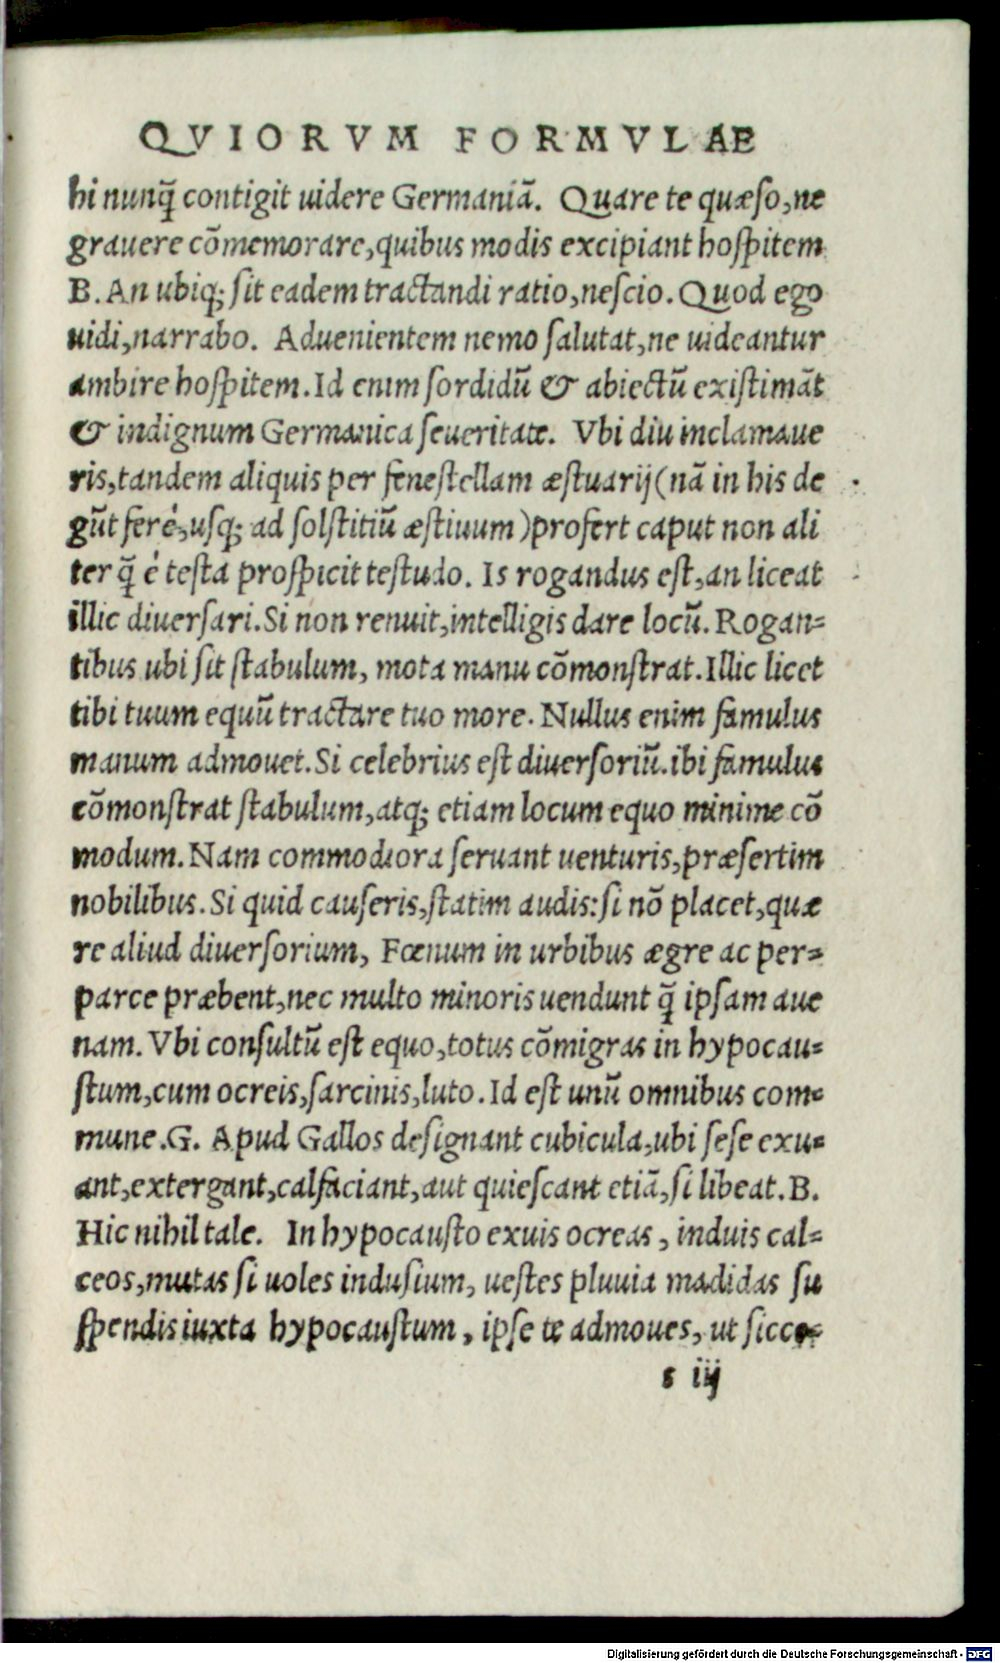 QVIORVM FORMVLAE
hi nunq̃ contigit uidere Germaniã. Quare te quæso, ne
grauere cõmemorare, quibus modis excipiant hospitem
B. An ubiq; sit eadem tractandi ratio, nescio. Quod ego
uidi, narrabo. Aduenientem nemo salutat, ne uideantur
ambire hospitem. Id enim sordidũ & abiectũ existimãt
& indignum Germanica seueritate. Vbi diu inclamaue
ris, tandem aliquis per fenestellam æstuarij (nã in his de
gũt ferè, usq; ad solstitiũ æstiuum) profert caput non ali
ter q̃ è testa prospicit testudo. Is rogandus est, an liceat
illic diuersari. Si non renuit, intelligis dare locũ. Rogan-
tibus ubi sit stabulum, mota manu cõmonstrat. Illic licet
tibi tuum equũ tractare tuo more. Nullus enim famulus
manum admouet. Si celebrius est diuersoriũ. ibi famulus
cõmonstrat stabulum, atq; etiam locum equo minime cõ
modum. Nam commodiora seruant uenturis, præsertim
nobilibus. Si quid causeris, statim audis: si nõ placet, quæ
re aliud diuersorium, Fœnum in urbibus ægre ac per-
parce præbent, nec multo minoris uendunt q̃ ipsam aue
nam. Vbi consultũ est equo, totus cõmigras in hypocau-
stum, cum ocreis, sarcinis, luto. Id est unũ omnibus com-
mune. G. Apud Gallos designant cubicula, ubi sese exu-
ant, extergant, calfaciant, aut quiescant etiã, si libeat. B.
Hic nihil tale. In hypocausto exuis ocreas, induis cal-
ceos, mutas si uoles indusium, uestes pluuia madidas su
spendis iuxta hypocaustum, ipse te admoues, ut sicce-
s iij
Digitalisierung gefördert durch die Deutsche Forschungsgemeinschaft - DFG